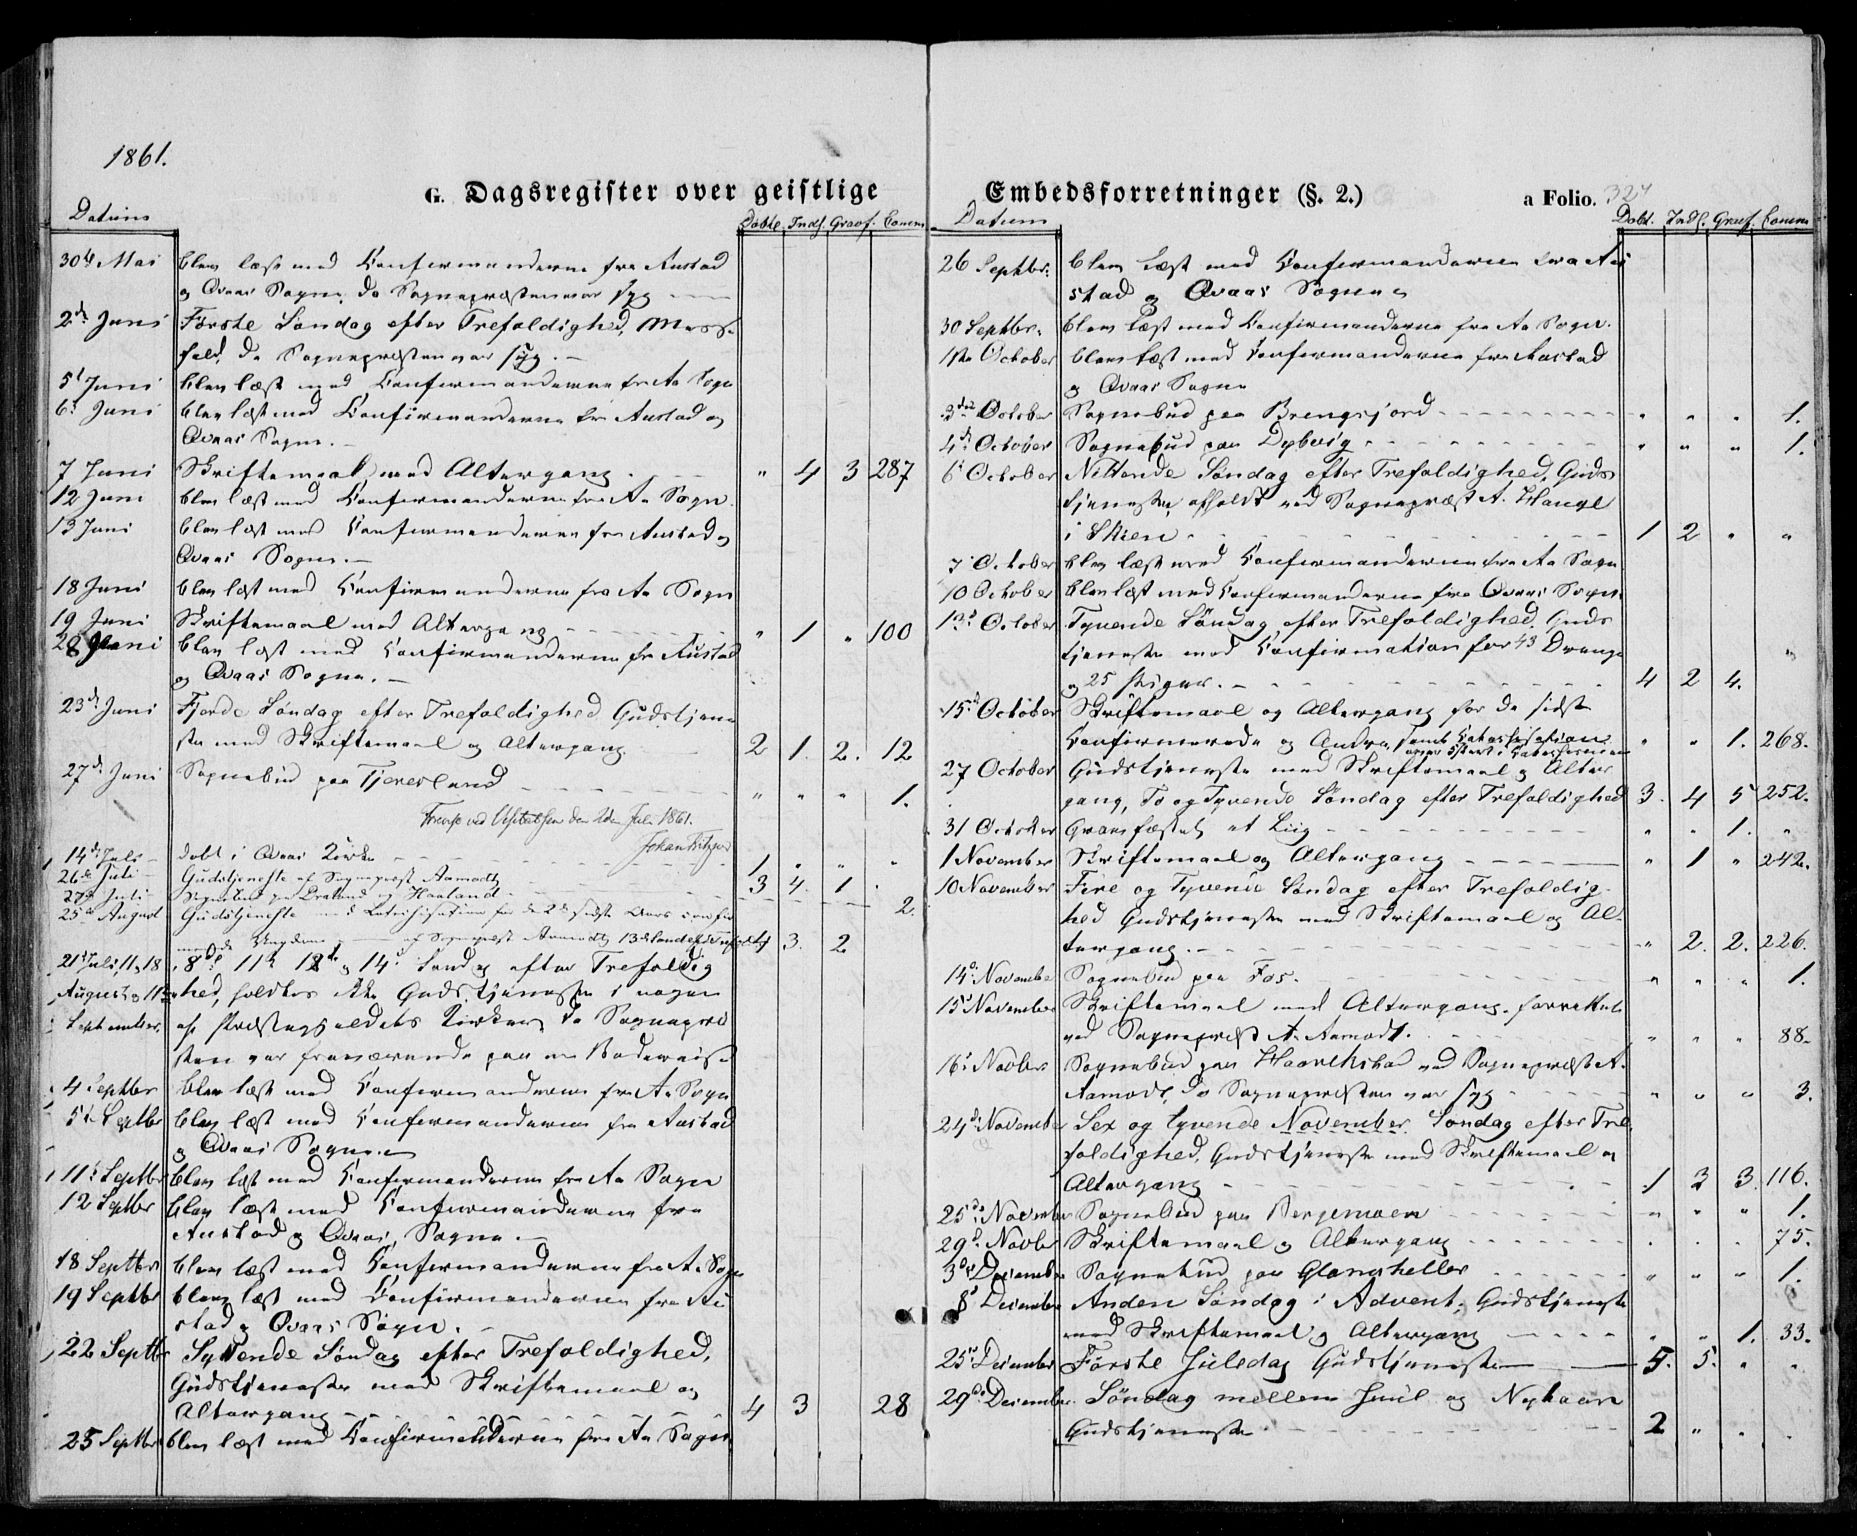 1861.
G. Dagsregister over geistlige
Datum Døbte. Indl. Graaf. Comm.
30te Mai blev læst med Confirmanderne fra Austad
og Qvaas Sogne, da Sognepræsten var syg
2de Juni Første Søndag efter Trefoldighed, Messe
fald, da Sognepræsten var syg.
5t Juni blev læst med Confirmanderne fra Aa Sogn
6t Juni blev læst med Confirmanderne fra Austad og
Qvaas Sogne.
7 Juni Skriftemaal med Altergang. " 4 3 287
12 Juni blev læst med Confirmanderne fra Aa Sogn.
13 Juni blev læst med Confirmanderne fra Austad og
Qvaas Sogne.
18 Juni blev læst med Confirmanderne fra Aa Sogn
19 Juni Skriftemaal med Altergang " 1 " 100
20 Juni blev læst med Confirmanderne fra Austad
og Qvaas Sogne.
23de Juni Fjerde Søndag efter Trefoldighed Gudstjene
ste med Skriftemaal og Altergang 2 1. 2. 12
27de Juni Sognebud paa Tjersland " " " 1.
ved Visitatsen den 2den Juli 1861.
Johan
14de Juli døbt i Qvaas Kirke 1 " " "
26de Juli Gudstjeneste af Sognepræst Aamodt 3 4. 1.
27de Juli Sognebud paa og Haaland 2.
25de August Gudstjeneste med Katechisation for de 2de sidste Aars confir
Ungdom af Sognepræst Aamodt 13de Søndag e. Tref. 3. 2
21de Juli, 11 og 18 8de 11te 12te og 14de Søndag efter Trefoldig
August og 1ste hed, holdtes ikke Gudstjeneste i nogen
September af Præstegjeldets Kirker, da Sognepræ
sten var fraværende paa en Badereise
4 Septbr blev læst med Confirmanderne fra Aa Sogn
5te Septbr blev læst med Confirmanderne fra Austad
og Qvaas Sogne
11te Septbr blev læst med Confirmanderne fra Aa Sogn
12 Septbr blev læst med Confirmanderne fra
Austad og Qvaas Sogne
18 Septbr blev læst med Confirmanderne fra Aa Sogn
19 Septbr blev læst med Confirmanderne fra Au
stad og Qvaas Sogn.
22 Septbr Syttende Søndag efter Trefoldighed,
Gudstjeneste med Skriftemaal og
Altergang 4 3 28
25 Septbr blev læst med Confirmanderne fra Aa Sogn
Embedsforretninger (§. 2.) a Folio. 327
Datum Døbt. Indl. Graaf. Comm.
26 Septbr. blev læst med Confirmanderne fra Au
stad og Qvaas Sogne
30 Septbr. blev læst med Confirmanderne fra Aa Sogn.
1ste October blev læst med Confirmanderne fra Austad
og Qvaas Sogne
3die October Sognebud paa Brengsjord " " " 1.
4de October Sognebud paa Dybvig " " " 1.
6te October Nittende Søndag efter Trefoldighed, Guds
tjeneste, afholdt ved Sognepræst A. Hauge
i Skien 1 2 " "
7 October blev læst med Confirmanderne fra Aa Sogn
10 October blev læst med Confirmanderne fra Qvaas Sogn.
13de October Tyvende Søndag efter Trefoldighed. Guds
tjeneste med Confirmation for 43 Drenge
og 25 Piger. 4 2 4. "
15de October Skriftemaal og Altergang for de sidst
Confirmerede og Andre, samt Katechisation " " 1. 268.
27 October Gudstjeneste med Skriftemaal og Alter
gang, To og Tyvende Søndag efter Trefoldighed 3. 4 5 252.
31 October Gravfæstet et Liig " " 1. "
1 November Skriftemaal og Altergang " 1 " 242.
10 November Fire og Tyvende Søndag efter Trefoldig
hed Gudstjeneste med Skriftemaal og Al
tergang. " 2. 2. 226.
14de November Sognebud paa Fos. " " " 1.
15de November Skriftemaal med Altergang. forrettet
ved Sognepræst A. Aamodt. " " " 88.
16de Novbr. Sognebud paa ved Sognepræst A.
Aamodt, da Sognepræsten var syg " " " 3.
24de November Sex og tyvende November Søndag efter Tre
foldighed, Gudstjeneste med Skriftemaal og
Altergang 1 3 3. 116.
25de November Sognebud paa Bergemoen " " " 1.
29de Novbr Skriftemaal og Altergang " . . 75.
3die December Sognebud paa Glansheller " " " 1.
8de December Anden Søndag i Advent, Gudstjeneste
med Skriftemaal og Altergang " " 1. 33.
25de December Første Juledag Gudstjeneste 5. 5. " "
29de December. Søndag mellem Juul og Nytaar
Gudstjeneste 2 " . .